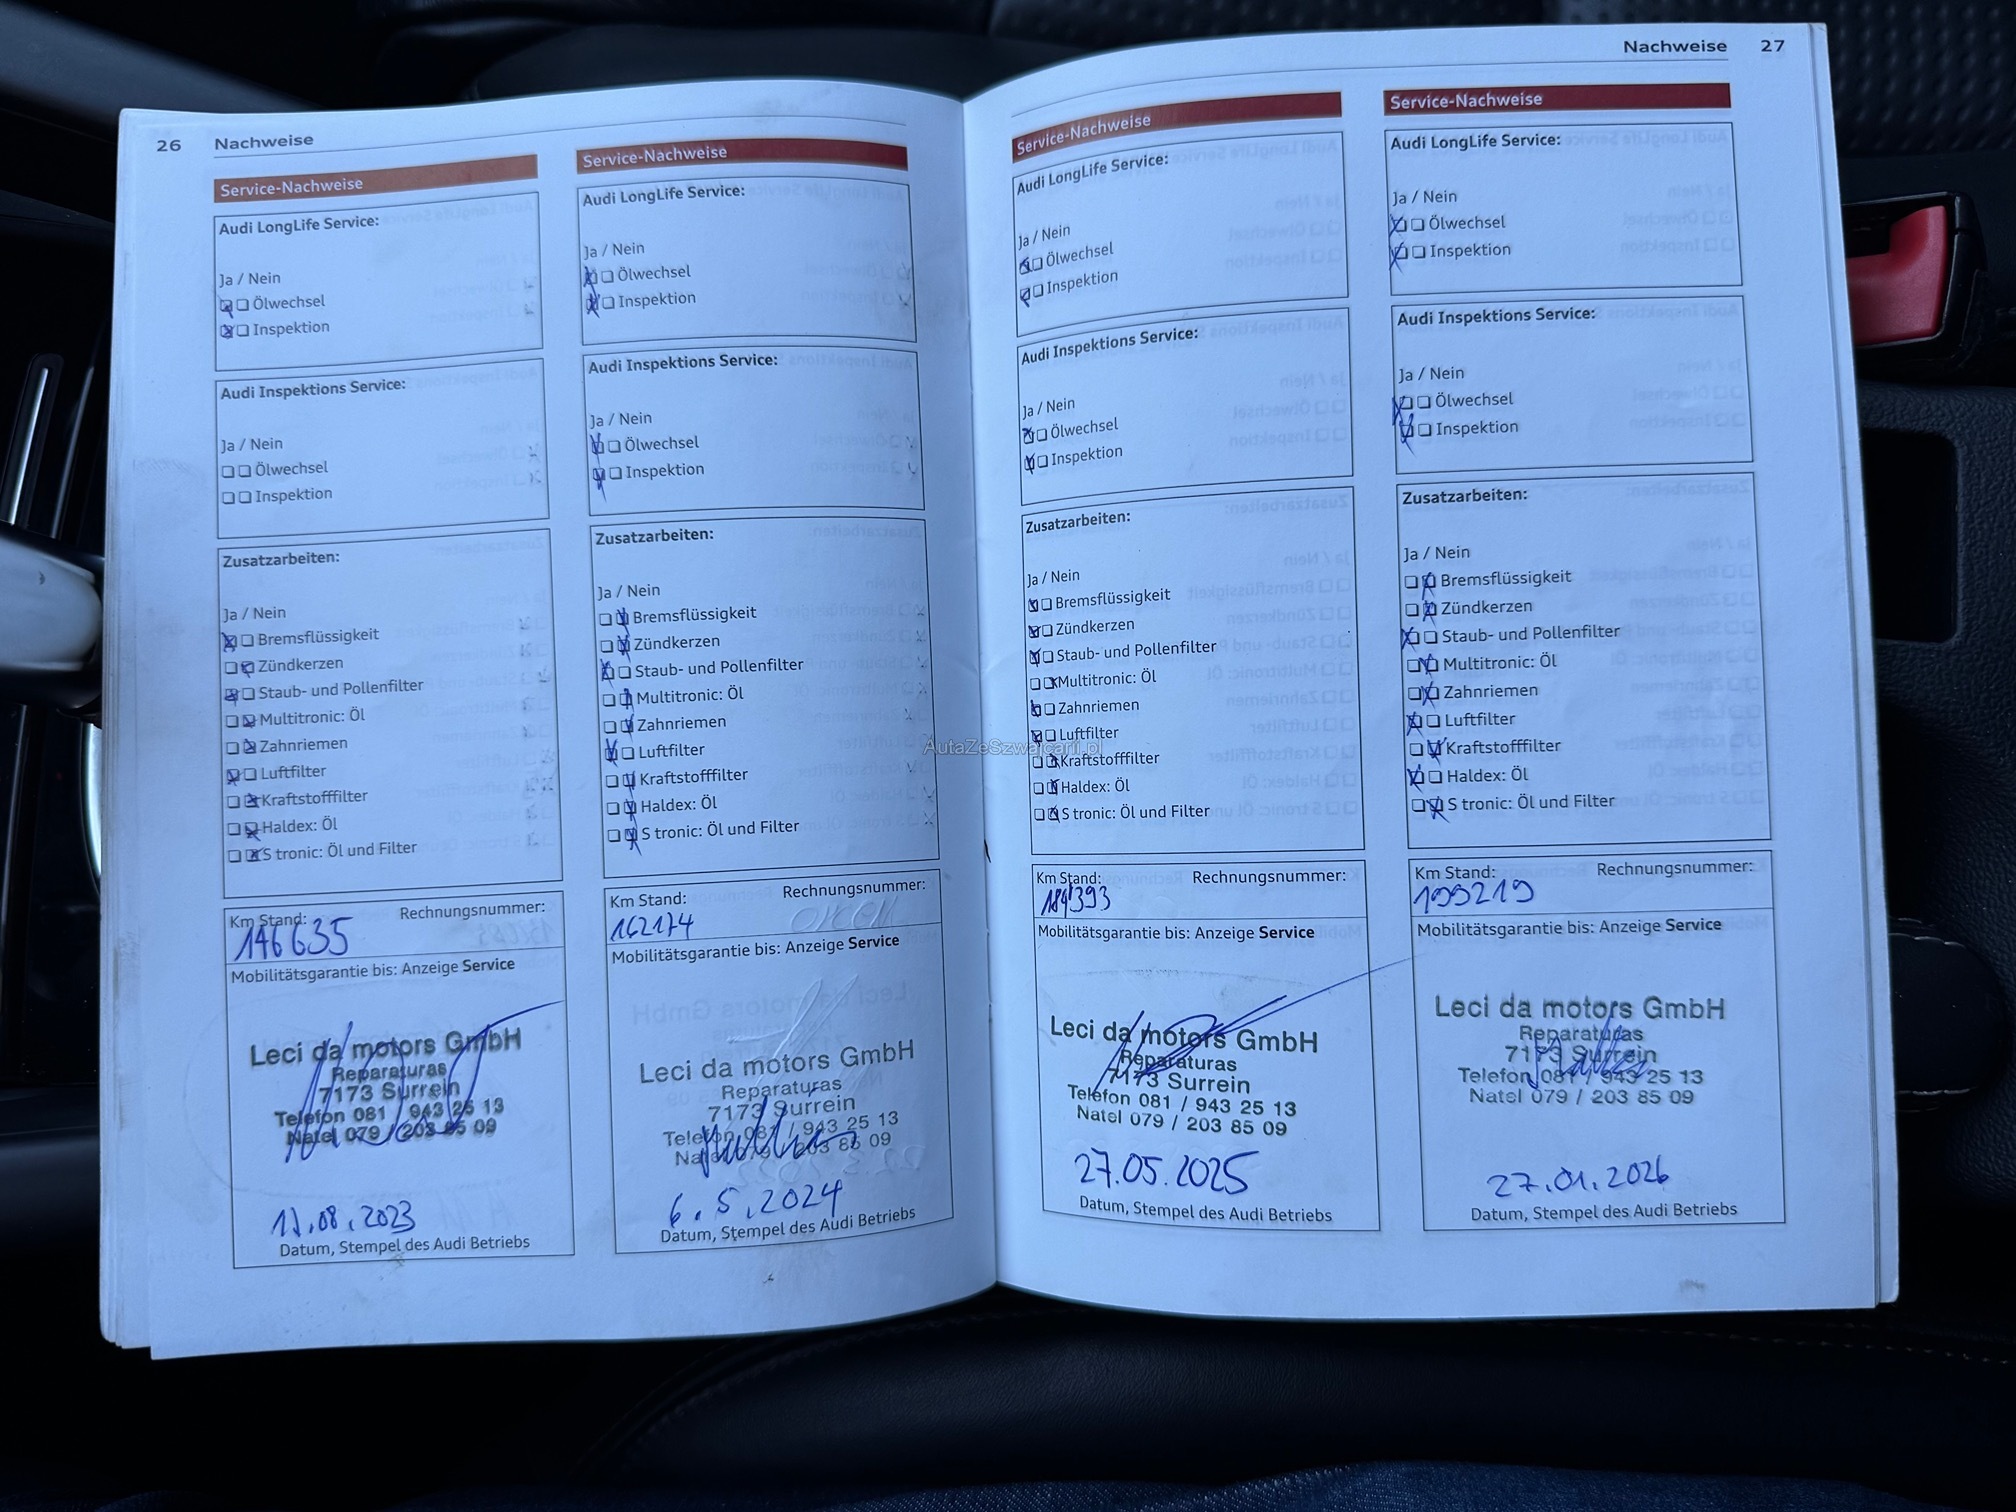 26 Nachweise
Service-Nachweise
Audi LongLife Service:
Ja / Nein
Ölwechsel
Inspektion
Audi Inspektions Service:
Ja / Nein
Ölwechsel
Inspektion
Zusatzarbeiten:
Ja / Nein
Bremsflüssigkeit
Zündkerzen
Staub- und Pollenfilter
Multitronic: Öl
Zahnriemen
Luftfilter
Kraftstofffilter
Haldex: Öl
S tronic: Öl und Filter
Km Stand: Rechnungsnummer:
146635
Mobilitätsgarantie bis: Anzeige Service
Leci da motors GmbH
Reparaturas
7173 Surrein
Telefon 081 / 943 25 13
Natel 079 / 203 85 09
17.08.2023
Datum, Stempel des Audi Betriebs
Service-Nachweise
Audi LongLife Service:
Ja / Nein
Ölwechsel
Inspektion
Audi Inspektions Service:
Ja / Nein
Ölwechsel
Inspektion
Zusatzarbeiten:
Ja / Nein
Bremsflüssigkeit
Zündkerzen
Staub- und Pollenfilter
Multitronic: Öl
Zahnriemen
Luftfilter
Kraftstofffilter
Haldex: Öl
S tronic: Öl und Filter
Km Stand: Rechnungsnummer:
162174
Mobilitätsgarantie bis: Anzeige Service
Leci da motors GmbH
Reparaturas
7173 Surrein
Telefon 081 / 943 25 13
Natel 079 / 203 85 09
6.5.2024
Datum, Stempel des Audi Betriebs
Nachweise 27
Service-Nachweise
Audi LongLife Service:
Ja / Nein
Ölwechsel
Inspektion
Audi Inspektions Service:
Ja / Nein
Ölwechsel
Inspektion
Zusatzarbeiten:
Ja / Nein
Bremsflüssigkeit
Zündkerzen
Staub- und Pollenfilter
Multitronic: Öl
Zahnriemen
Luftfilter
Kraftstofffilter
Haldex: Öl
S tronic: Öl und Filter
Km Stand: Rechnungsnummer:
184393
Mobilitätsgarantie bis: Anzeige Service
Leci da motors GmbH
Reparaturas
7173 Surrein
Telefon 081 / 943 25 13
Natel 079 / 203 85 09
27.05.2025
Datum, Stempel des Audi Betriebs
Service-Nachweise
Audi LongLife Service:
Ja / Nein
Ölwechsel
Inspektion
Audi Inspektions Service:
Ja / Nein
Ölwechsel
Inspektion
Zusatzarbeiten:
Ja / Nein
Bremsflüssigkeit
Zündkerzen
Staub- und Pollenfilter
Multitronic: Öl
Zahnriemen
Luftfilter
Kraftstofffilter
Haldex: Öl
S tronic: Öl und Filter
Km Stand: Rechnungsnummer:
199219
Mobilitätsgarantie bis: Anzeige Service
Leci da motors GmbH
Reparaturas
7173 Surrein
Telefon 081 / 943 25 13
Natel 079 / 203 85 09
27.01.2026
Datum, Stempel des Audi Betriebs
AutaZeSzwajcarii.pl